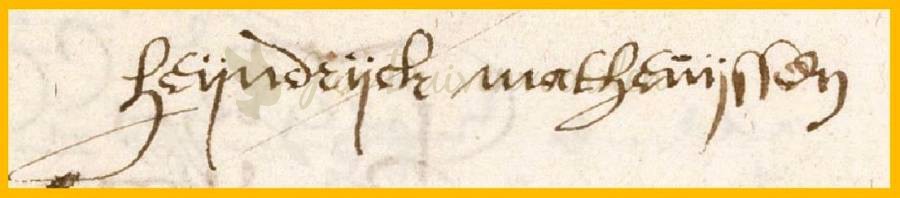 heijndrijck matheuijssen